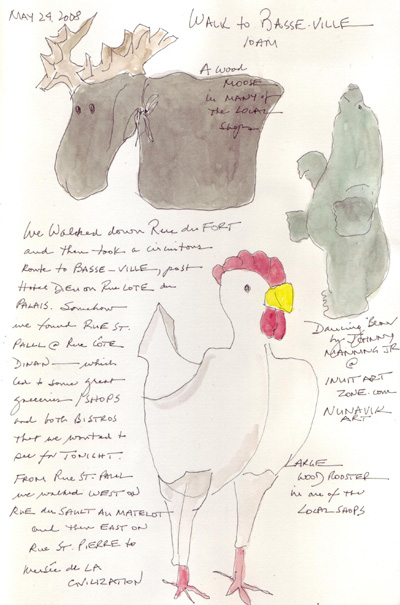 MAY 29, 2008
WALK to BASSE-VILLE
10AM
A wood
MOOSE
in MANY of
the LOCAL
shops
We walked down Rue du FORT
and then took a circuitous
Route to BASSE-VILLE, past
Hotel on Rue COTE du
PALAIS. Somehow
we found RUE ST.
PAUL @ Rue CÔTE
DINAN — which
led to some great
groceries/SHOPS
and both BISTROS
that we wanted to
see for TONIGHT.
FROM RUE ST. PAUL
we walked WEST ON
RUE du SAULT AU MATELOT
and then EAST ON
Rue ST. PIERRE to
Musée de LA
CIVILIZATION
Dancing Bear
by JOHNNY
MANNING JR
@
INUIT ART
ZONE.com
NUNAVIK
ART
LARGE
WOOD ROOSTER
in one of the
LOCAL SHOPS